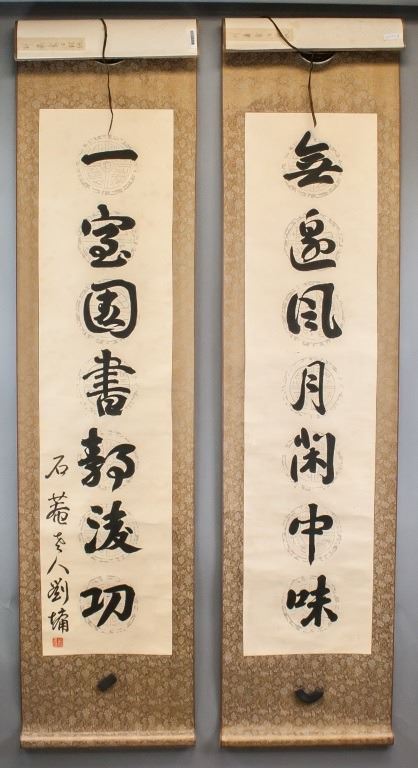 無邊風月閑中味
一室圖書後功
石菴老人劉墉